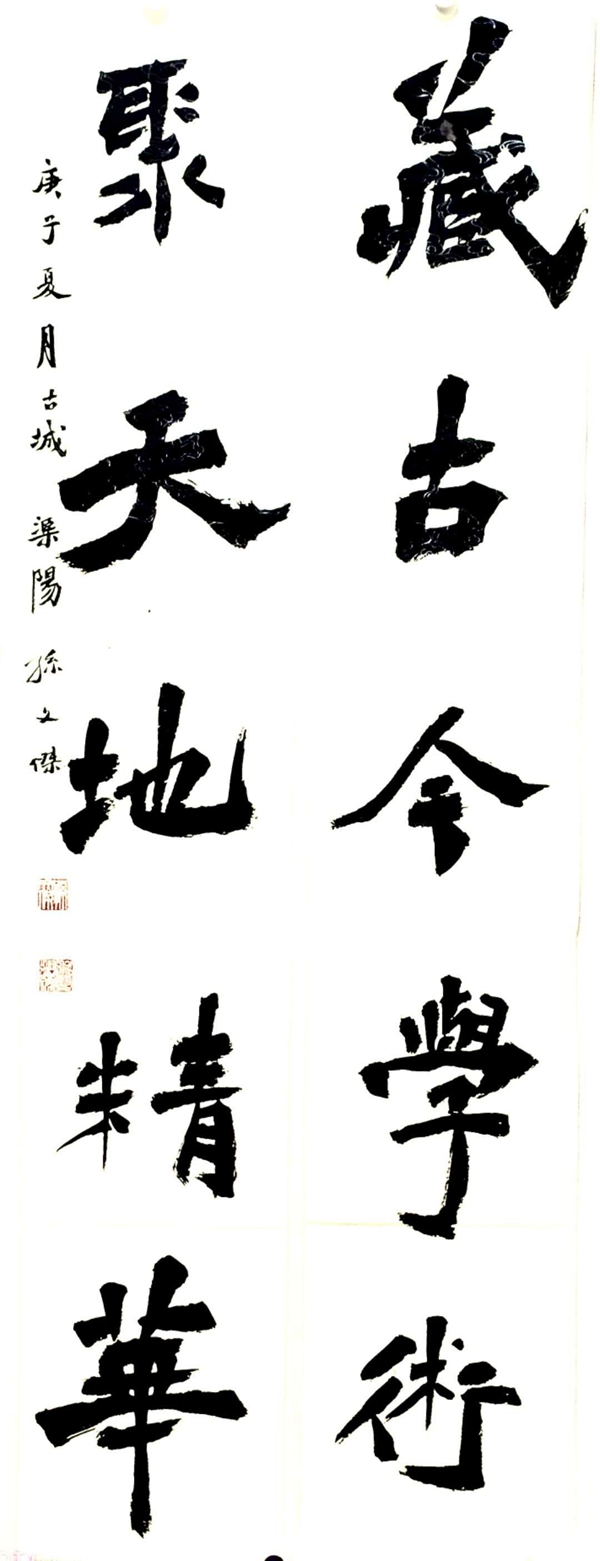 藏古今學術
聚天地精華
庚子夏月古城渠陽孫文傑